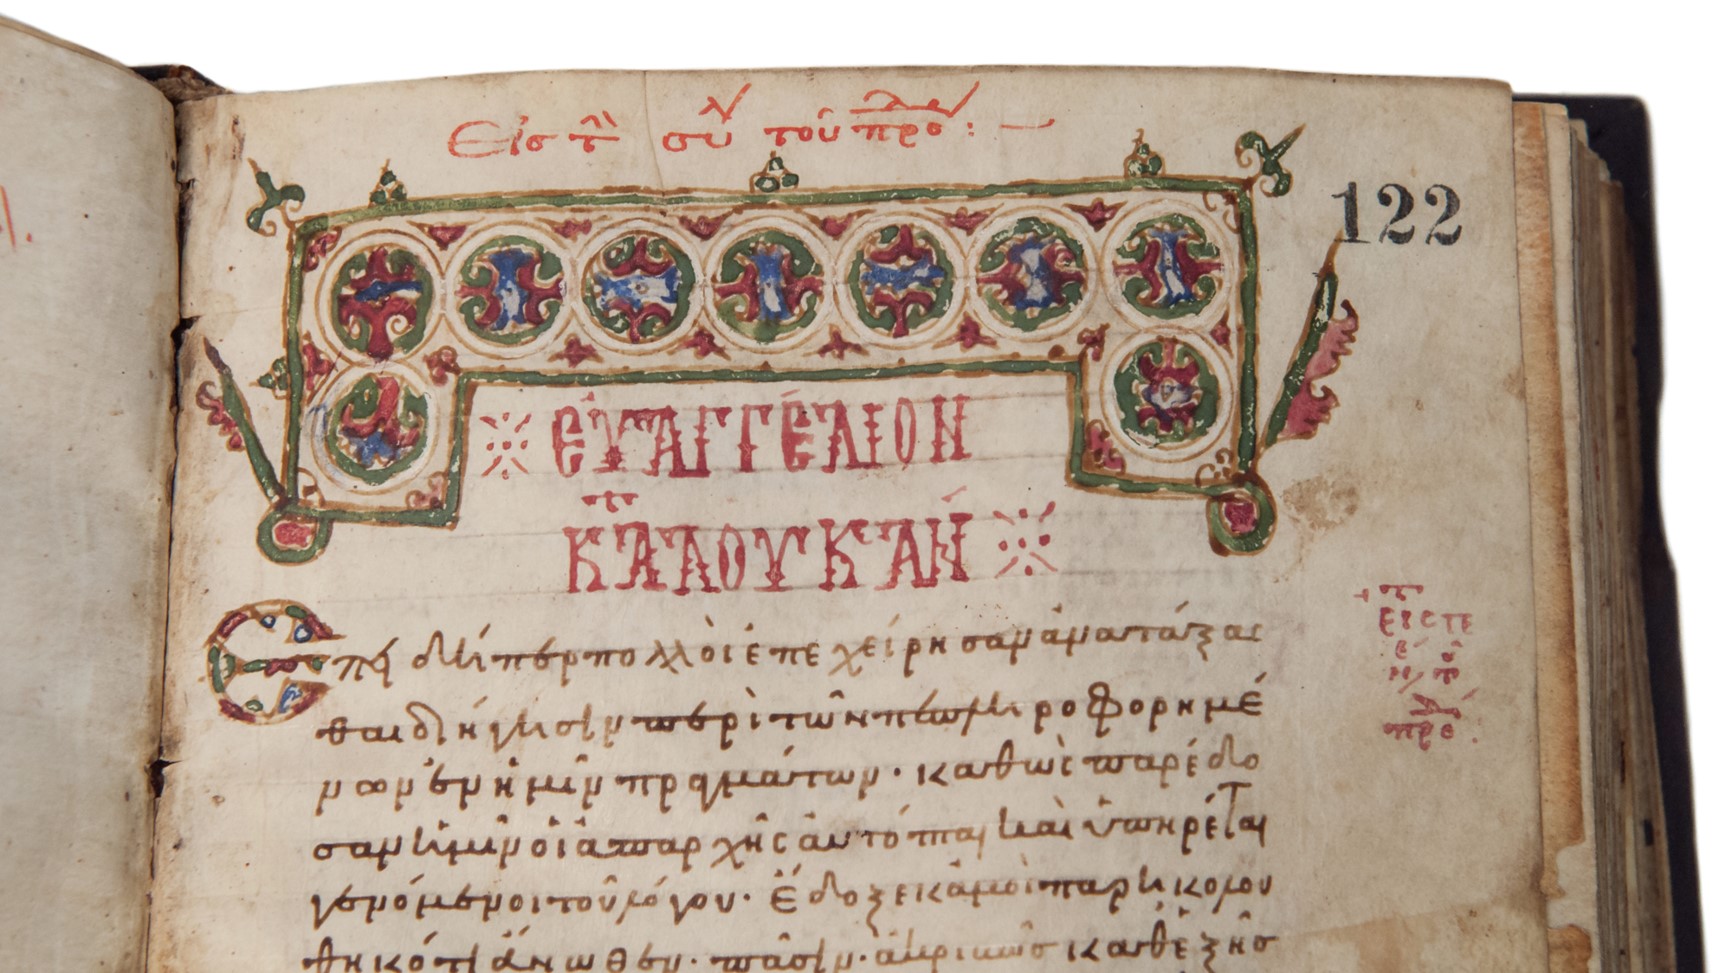 Εἰς τ σύ τοῦ προ : —
122
※ ΕΥΑΓΓΕΛΙΟΝ
ΚΑ ΛΟΥΚΑΝ ※
Ἐπειδήπερ πολλοὶ ἐπεχείρησαν ἀνατάξασ
θαι διήγησιν περὶ τῶν πεπληροφορημέ
νων ἐν ἡμῖν πραγμάτων · καθὼς παρέδο
σαν ἡμῖν οἱ ἀπαρχῆς αὐτόπται καὶ ὑπηρέται
γενόμενοι τοῦ λόγου · Ἔδοξε κἀμοὶ παρηκολου
θηκότι ἄνωθεν · πᾶσιν · ἀκριβῶς καθεξῆς
εις τ
προ .